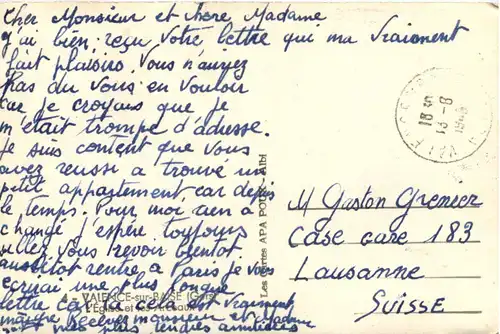 Cher Monsieur et chere Madame
J'ai bien reçu votre lettre qui ma vraiment
fait plaisirs. Vous n'auriez
pas du vous en vouloir
car je croyais que je
m'était trompe d'adresse.
Je suis content que vous
avez reussi a trouvé un
petit appartement car depuis
le temps. Pour moi, rien a
changé j'espère toujours
allez vous revoir bientot
aussitot rentre a Paris je vous
ecrirai une plus longue
lettre car cela est vraiment
maigre. Recevez monsieur et Madame
mes plus tendres amitiées
4 - VALENCE-sur-BAISE (Gers)
L'Eglise et les
Les Cartes APA POUX - Albi
18 H
13-8
M Gaston Grenier
Case Gare 183
Lausanne
Suisse